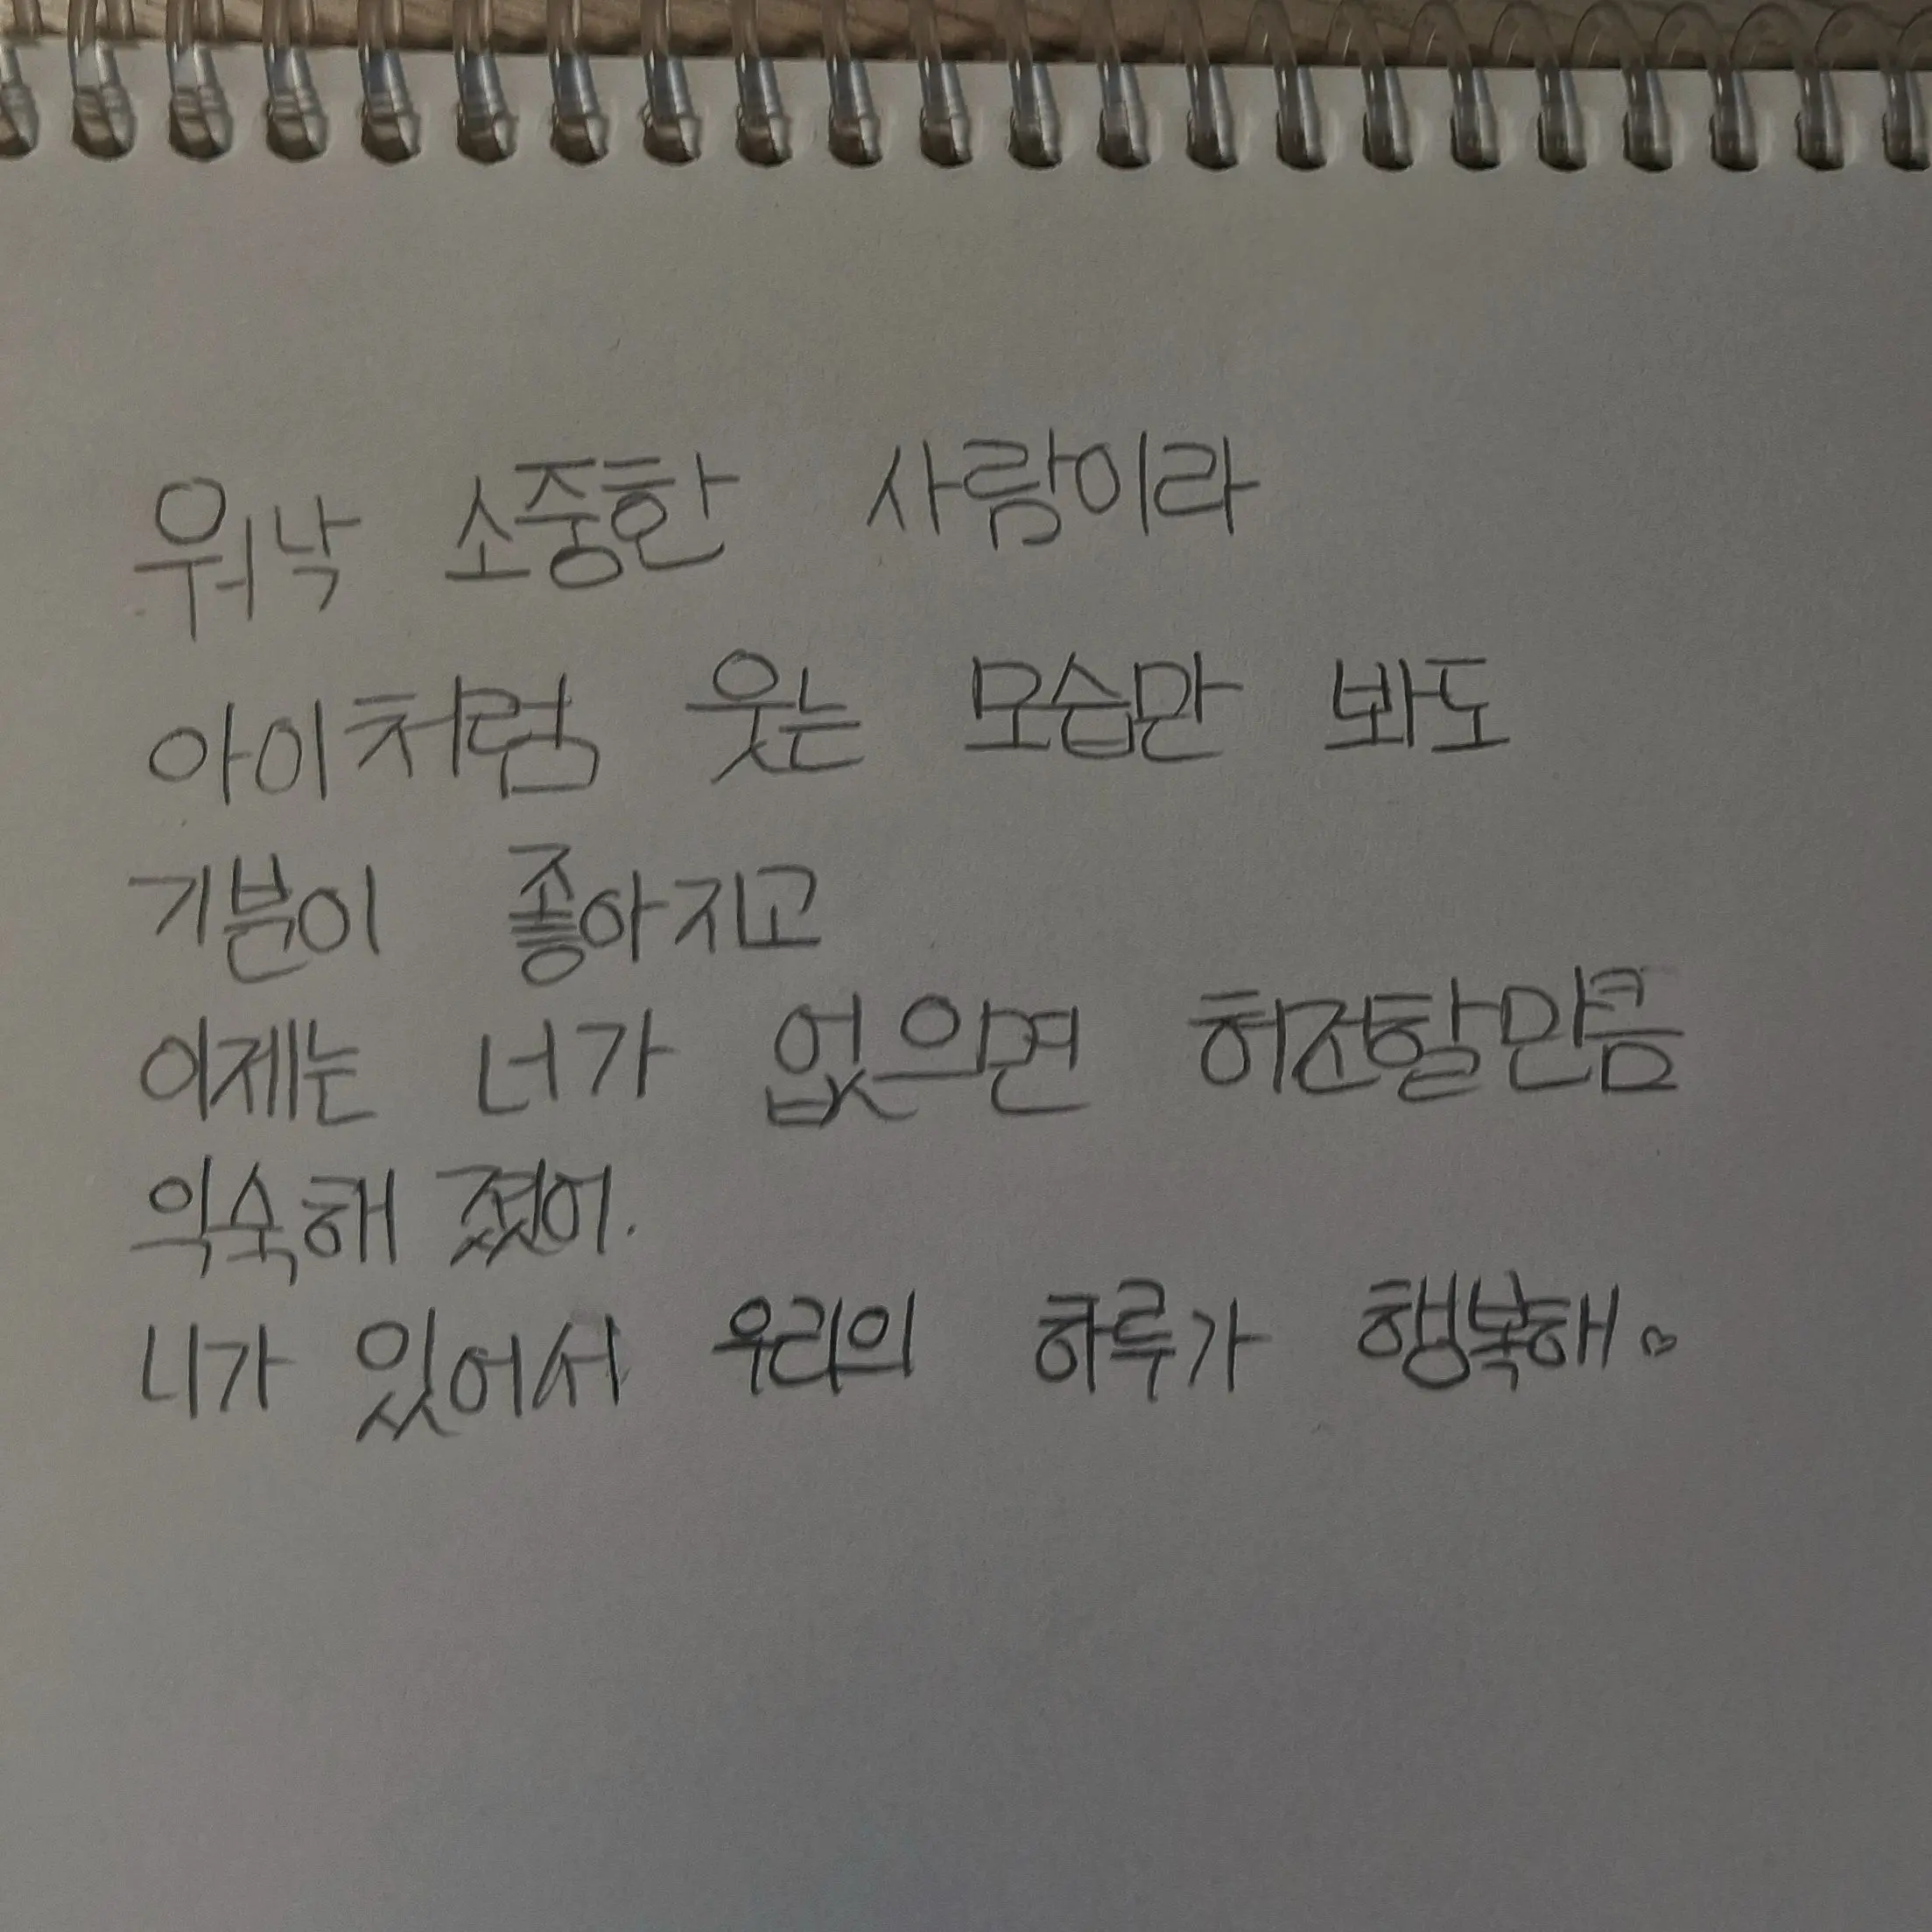 워낙 소중한 사람이라
아이처럼 웃는 모습만 봐도
기분이 좋아지고
이제는 너가 없으면 허전할만큼
익숙해 졌어.
니가 있어서 우리의 하루가 행복해♡